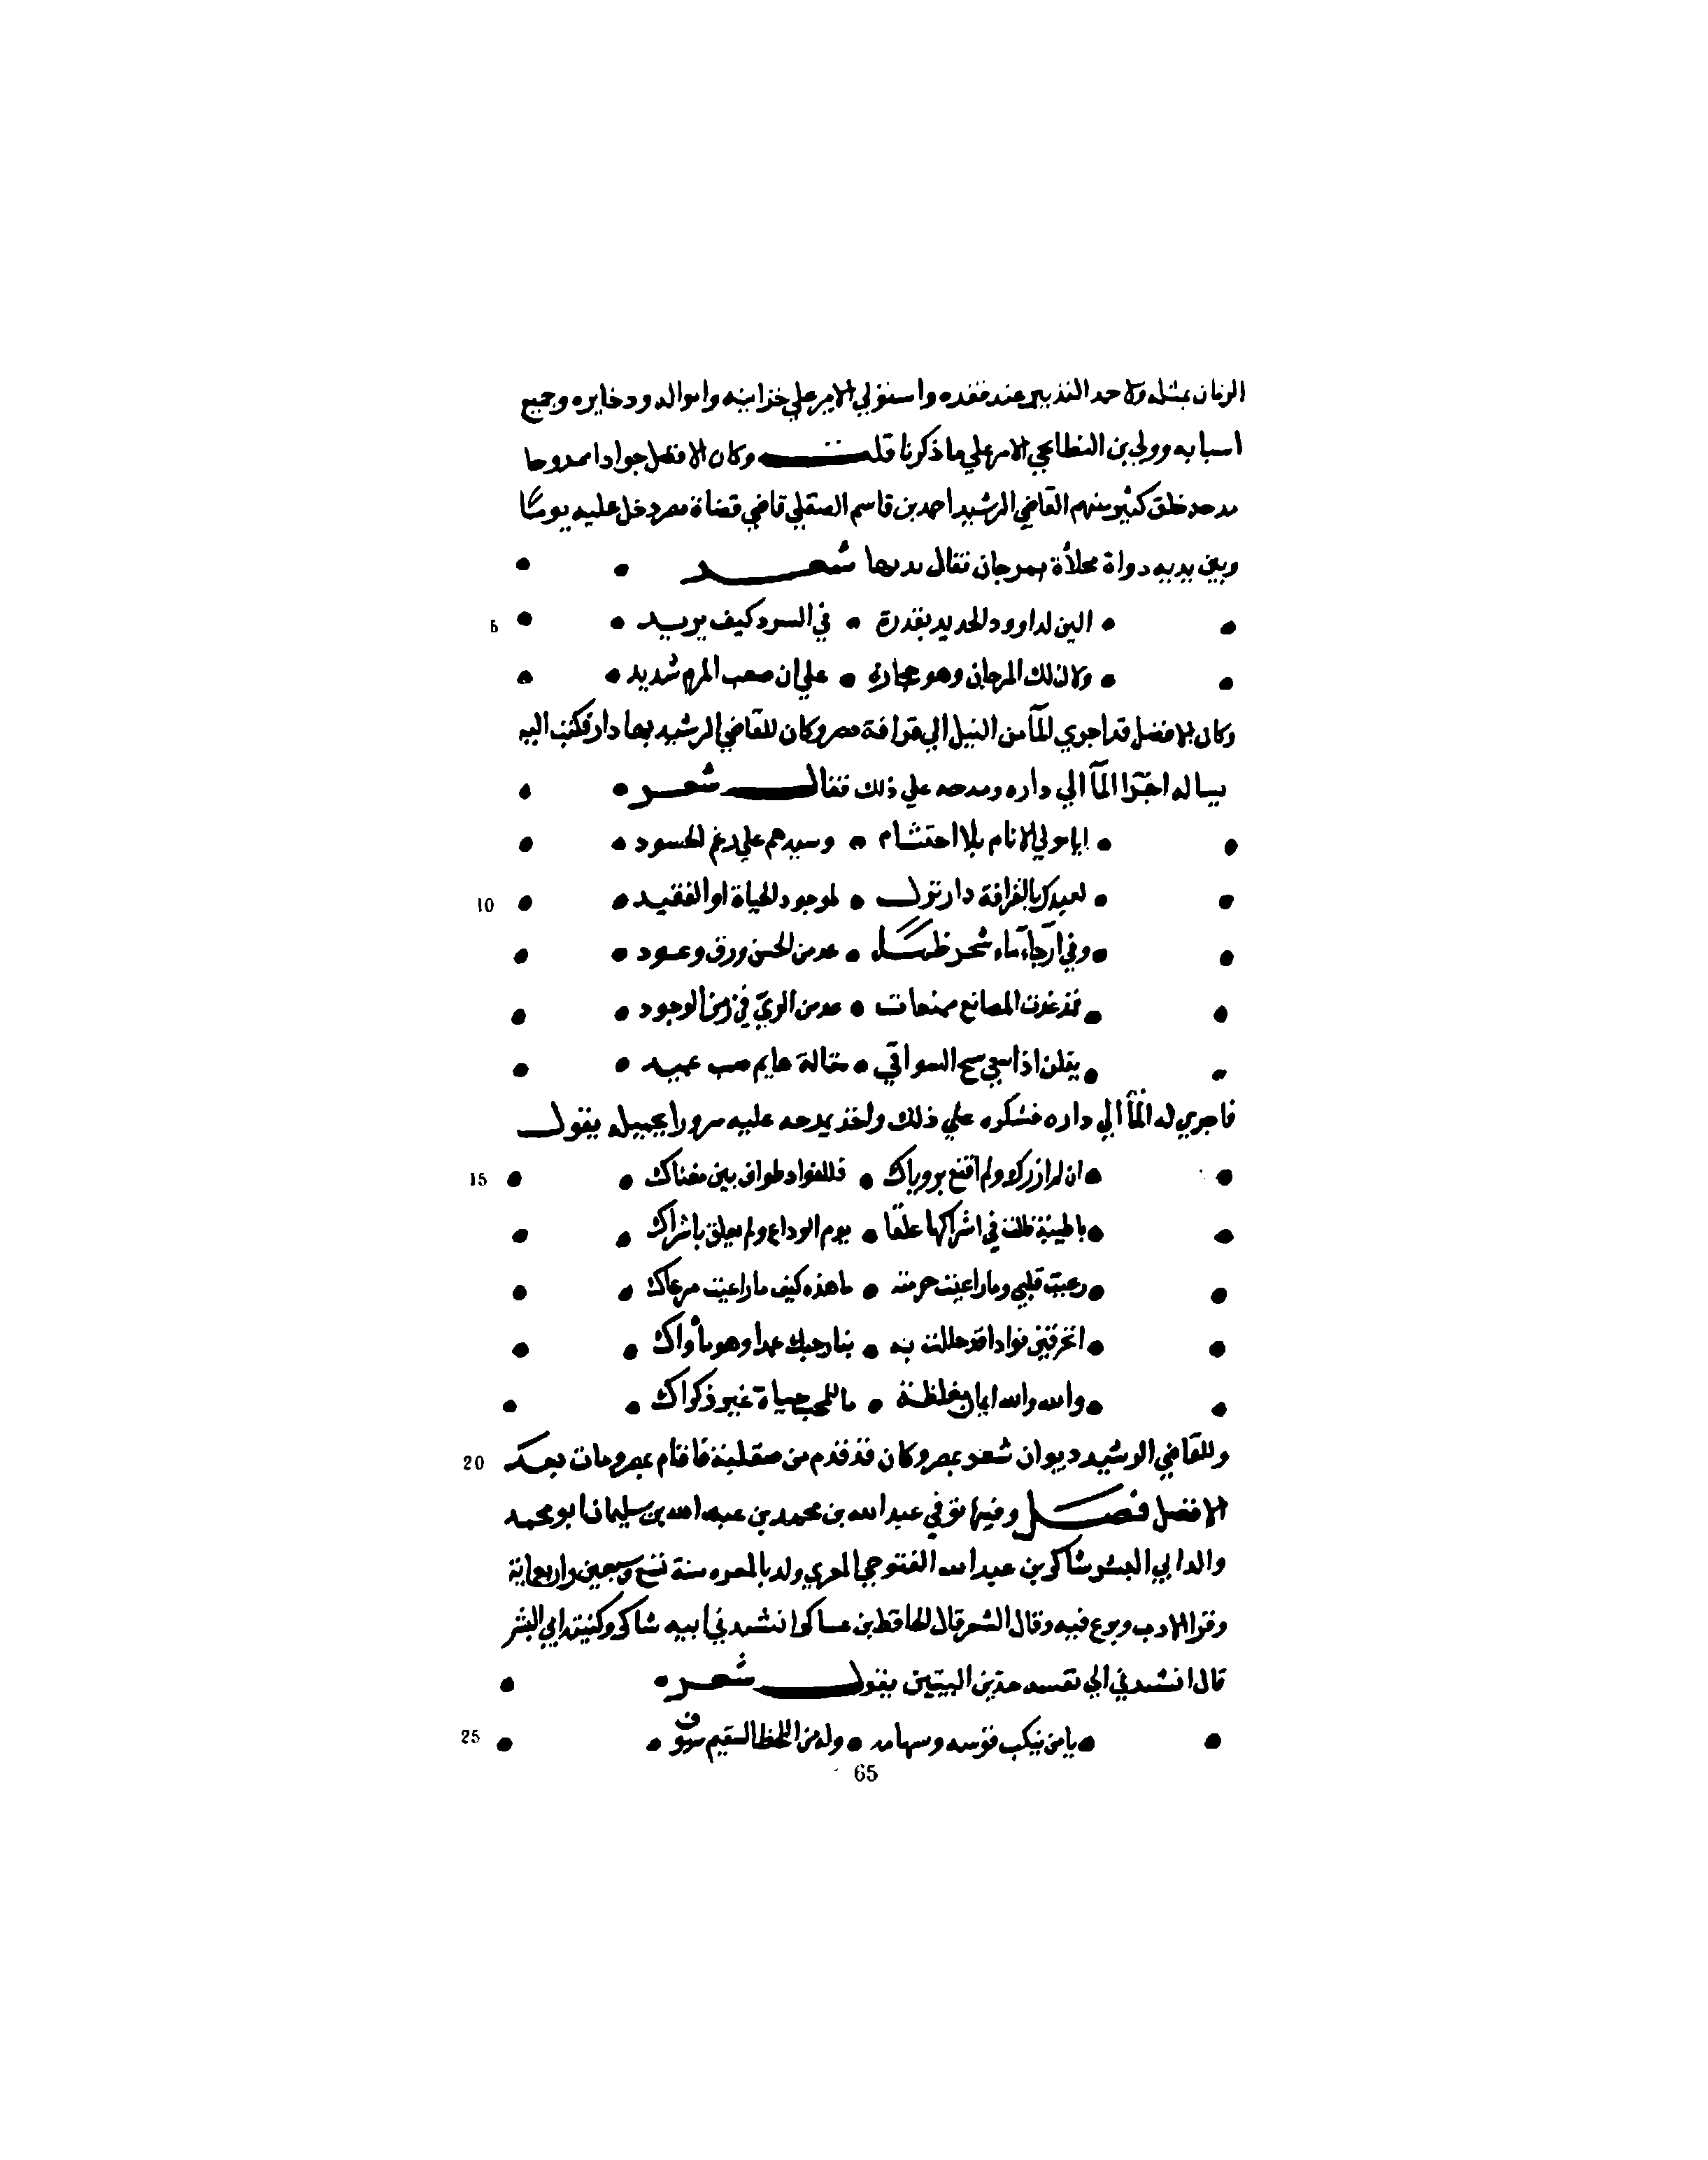 الزمان بمثله ولا حمد التدبير عند فقده واستولي الامر علي خزاينه وامواله ودخايره وجميع
اسبابه وولي بن البطايحي الامر علي ما ذكرنا قلت وكان الافضل جوادا ممدوحا
مدحه خلق كثير منهم القاضي الرشيد احمد بن قاسم الصقلي قاضي قضاة مصر دخل عليه يوما
وبين يديه دواة محلاة بمرجان فقال بديها شعر
الين لداوود الحديد بقدرة • في السرد كيف يريد
ولان لك المرجان وهو حجارة • علي ان صعب المرام شديد
وكان الافضل قد اجري المآ من النيل الي قرافة مصر وكان للقاضي الرشيد بها دار فكتب اليه
يساله اجرآ المآ الي داره ومدحه علي ذلك فقال شعر
ايا مولي الانام بلا احتشام • وسيدهم علي رغم الحسود
لعبدك بالقرافة دار نزل • لموجود الحياة او الفقيد
وفي ارجآءها شجر • عدمن الحسن ورق وعود
قد غدت المصانع • عدمن الري في زمن الوجود
يقلن اذا سح السواقي • مقالة هايم صب عميد
فاجري له المآ الي داره فشكره علي ذلك واخذ يمدحه عليه سرورا بجميله بقول
ان لم ازرك ولم اقنع بروياك • فللفواد طواف بين مغناك
يا ظبية ظلت في اشراكها علقا • يوم الوداع ولم تعلق باشراك
رعيت قلبي وما راعيت حرمته • ما هذه كيف ما راعيت مرعاك
اتحرقين فوادا قد حللت به • بنار حبك عمدا وهو مأواك
والله والله ايمان مغلظة • ما للمحب حياة غير ذكراك
وللقاضي الرشيد ديوان شعر بمصر وكان قد قدم من صقلية فاقام بمصر ومات بعد
الافضل فصل وفيها توفي عبد الله بن محمد بن عبد الله بن سليمان ابو محمد
والد ابي اليسر شاكر بن عبد الله التنوخي المعري ولد بالمعره سنة تسع وسبعين واربعماية
وقرا الادب وبرع فيه وقال الشعر قال الحافظ بن عساكر انشدني ابيه شاكر وكنيته ابي البشر
قال انشدني ابي لنفسه هذين البيتين بقول شعر
يا من تنكب قوسه وسهامه • وله من اللحظ السقيم سيوف
5
10
15
20
25
65